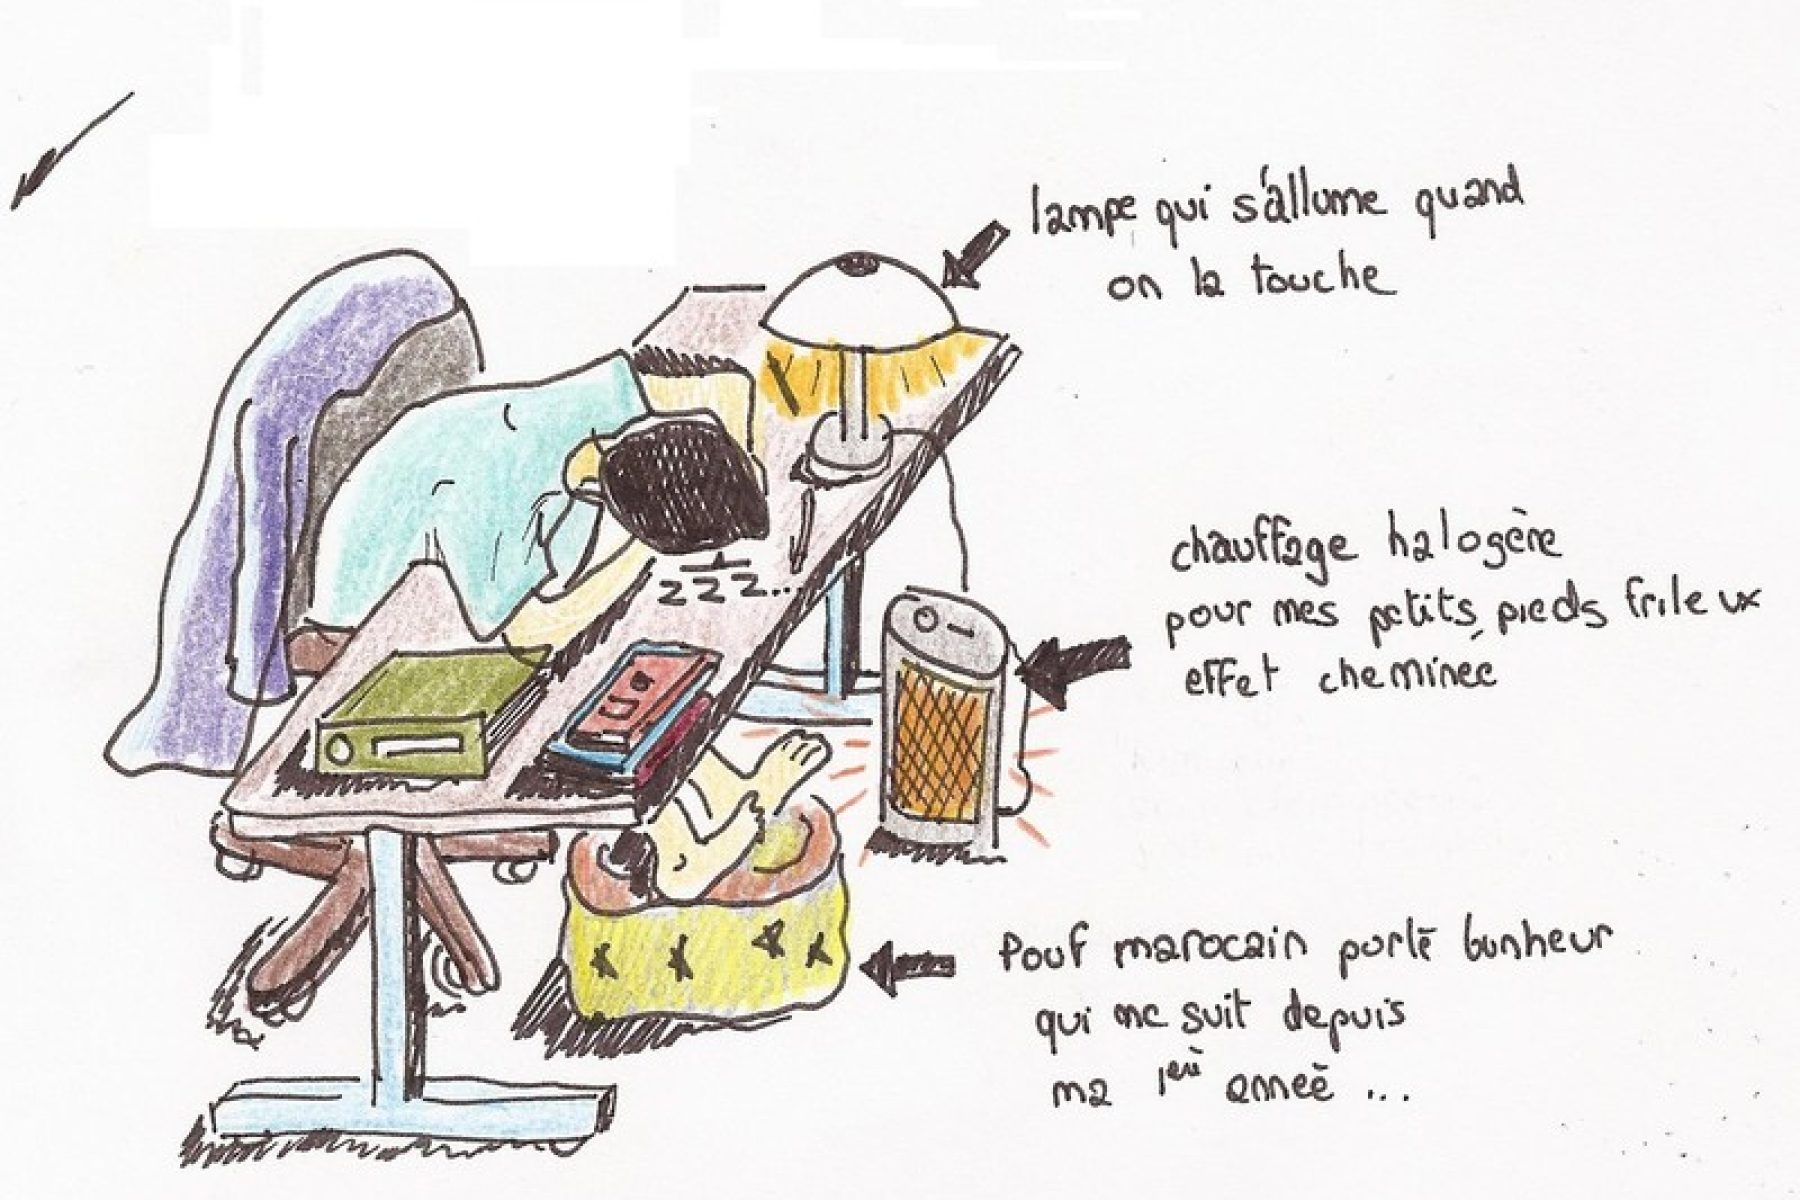 lampe qui s'allume quand
on la touche
zzz...
chauffage halogère
pour mes petits pieds frileux
effet cheminée
Pouf marocain porte bonheur
qui me suit depuis
ma 1ere année ...